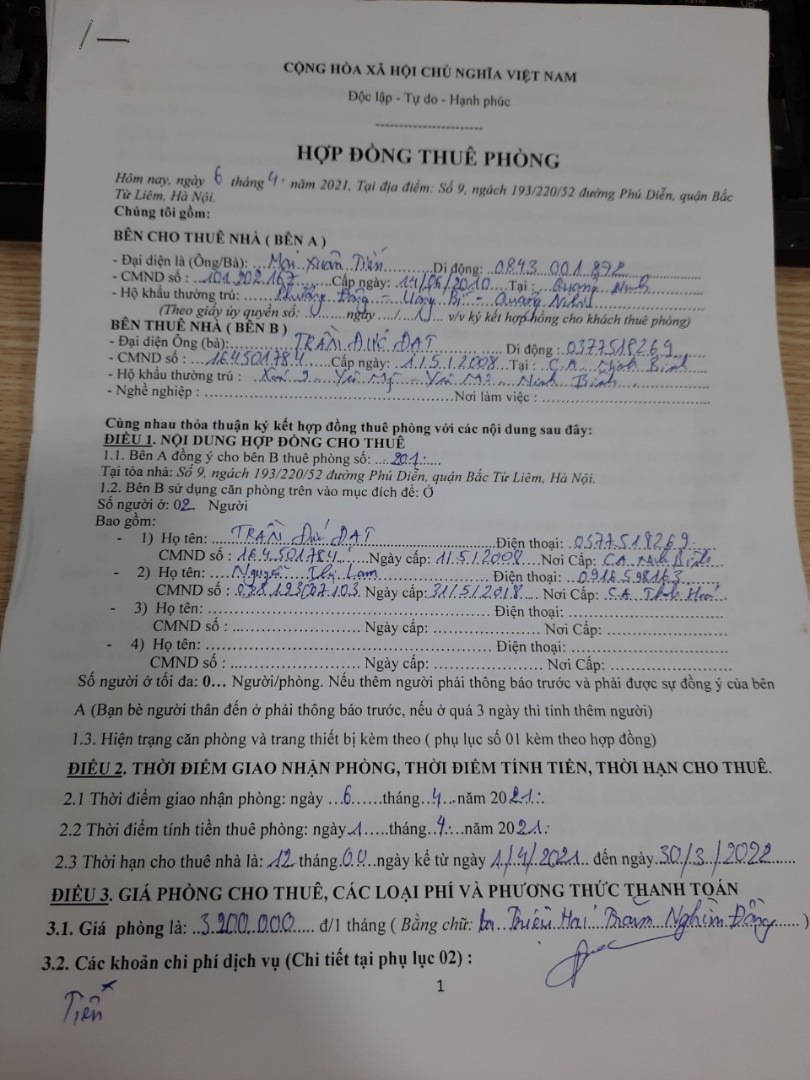 CỘNG HÒA XÃ HỘI CHỦ NGHĨA VIỆT NAM
Độc lập - Tự do - Hạnh phúc
HỢP ĐỒNG THUÊ PHÒNG
Hôm nay, ngày 6 tháng 4. năm 2021, Tại địa điểm: Số 9, ngách 193/220/52 đường Phú Diễn, quận Bắc
Từ Liêm, Hà Nội.
Chúng tôi gồm:
BÊN CHO THUÊ NHÀ ( BÊN A )
- Đại diện là (Ông/Bà): Mai Xuân Tiến Di động: 0843 001 892
- CMND số : 101202167 Cấp ngày: 14/06/2010 Tại : Quảng Ninh
- Hộ khẩu thường trú: Phương Đông - Uông Bí - Quảng Ninh
(Theo giấy ủy quyền số: ngày / / v/v ký kết hợp đồng cho khách thuê phòng)
BÊN THUÊ NHÀ ( BÊN B )
- Đại diện Ông (bà): TRẦN ĐỨC ĐẠT Di động : 0377518269
- CMND số : 164501784 Cấp ngày: 11/5/2008 Tại : C.A Ninh Bình
- Hộ khẩu thường trú : Yên Mô Ninh Bình
- Nghề nghiệp : Nơi làm việc :
Cùng nhau thỏa thuận ký kết hợp đồng thuê phòng với các nội dung sau đây:
ĐIỀU 1. NỘI DUNG HỢP ĐỒNG CHO THUÊ
1.1. Bên A đồng ý cho bên B thuê phòng số: 201
Tại tòa nhà: Số 9, ngách 193/220/52 đường Phú Diễn, quận Bắc Từ Liêm, Hà Nội.
1.2. Bên B sử dụng căn phòng trên vào mục đích để: Ở
Số người ở: 02 Người
Bao gồm:
- 1) Họ tên: TRẦN ĐỨC ĐẠT Điện thoại: 0377518269
CMND số : 164501784 Ngày cấp: 11/5/2008 Nơi Cấp: C.A Ninh Bình
- 2) Họ tên: Nguyễn Thị Lam Điện thoại: 0916598163
CMND số : 038193007103 Ngày cấp: 31/5/2018 Nơi Cấp: C.A Thanh Hoá
- 3) Họ tên: Điện thoại:
CMND số : Ngày cấp: Nơi Cấp:
- 4) Họ tên: Điện thoại:
CMND số : Ngày cấp: Nơi Cấp:
Số người ở tối đa: 0… Người/phòng. Nếu thêm người phải thông báo trước và phải được sự đồng ý của bên
A (Bạn bè người thân đến ở phải thông báo trước, nếu ở quá 3 ngày thì tính thêm người)
1.3. Hiện trạng căn phòng và trang thiết bị kèm theo ( phụ lục số 01 kèm theo hợp đồng)
ĐIỀU 2. THỜI ĐIỂM GIAO NHẬN PHÒNG, THỜI ĐIỂM TÍNH TIỀN, THỜI HẠN CHO THUÊ.
2.1 Thời điểm giao nhận phòng: ngày 6 tháng 4 năm 2021
2.2 Thời điểm tính tiền thuê phòng: ngày 1 tháng 4 năm 2021
2.3 Thời hạn cho thuê nhà là: 12 tháng 00 ngày kể từ ngày 1/4/2021 đến ngày 30/3/2022
ĐIỀU 3. GIÁ PHÒNG CHO THUÊ, CÁC LOẠI PHÍ VÀ PHƯƠNG THỨC THANH TOÁN
3.1. Giá phòng là: 3.200.000 đ/1 tháng ( Bằng chữ: Ba Triệu Hai Trăm Nghìn Đồng )
3.2. Các khoản chi phí dịch vụ (Chi tiết tại phụ lục 02) :
1
Tiến